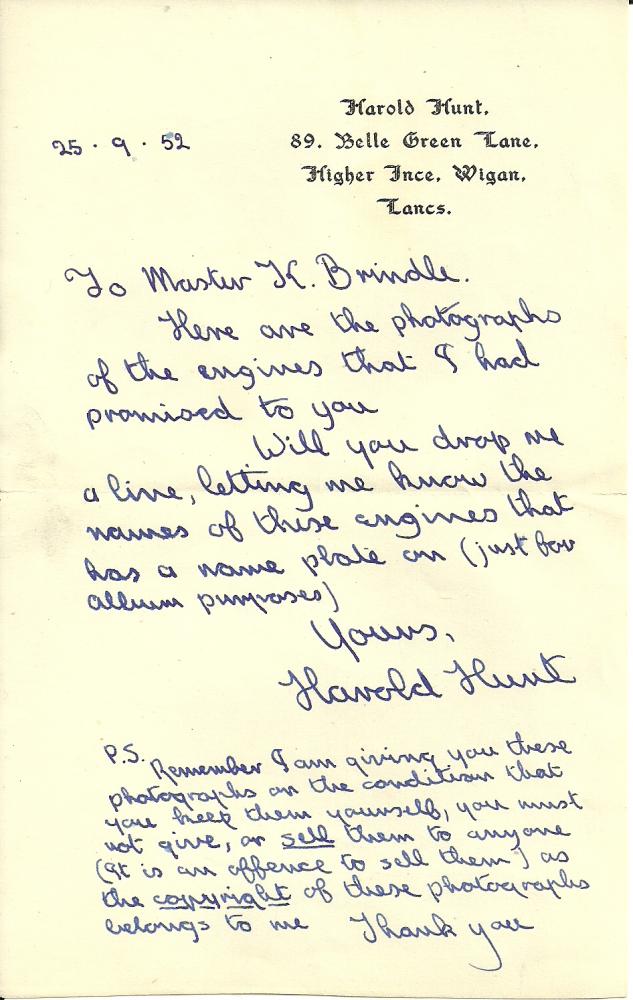 Harold Hunt,
25 . 9 . 52
89. Belle Green Lane,
Higher Ince, Wigan,
Lancs.
To Master K. Brindle.
Here are the photographs
of the engines that I had
promised to you
Will you drop me
a line, letting me know the
names of these engines that
has a name plate on (just for
album purposes)
Yours,
Harold Hunt
P.S. Remember I am giving you these
photographs on the condition that
you keep them yourself, you must
not give, or sell them to anyone
(It is an offence to sell them) as
the copyright of these photographs
belongs to me Thank you